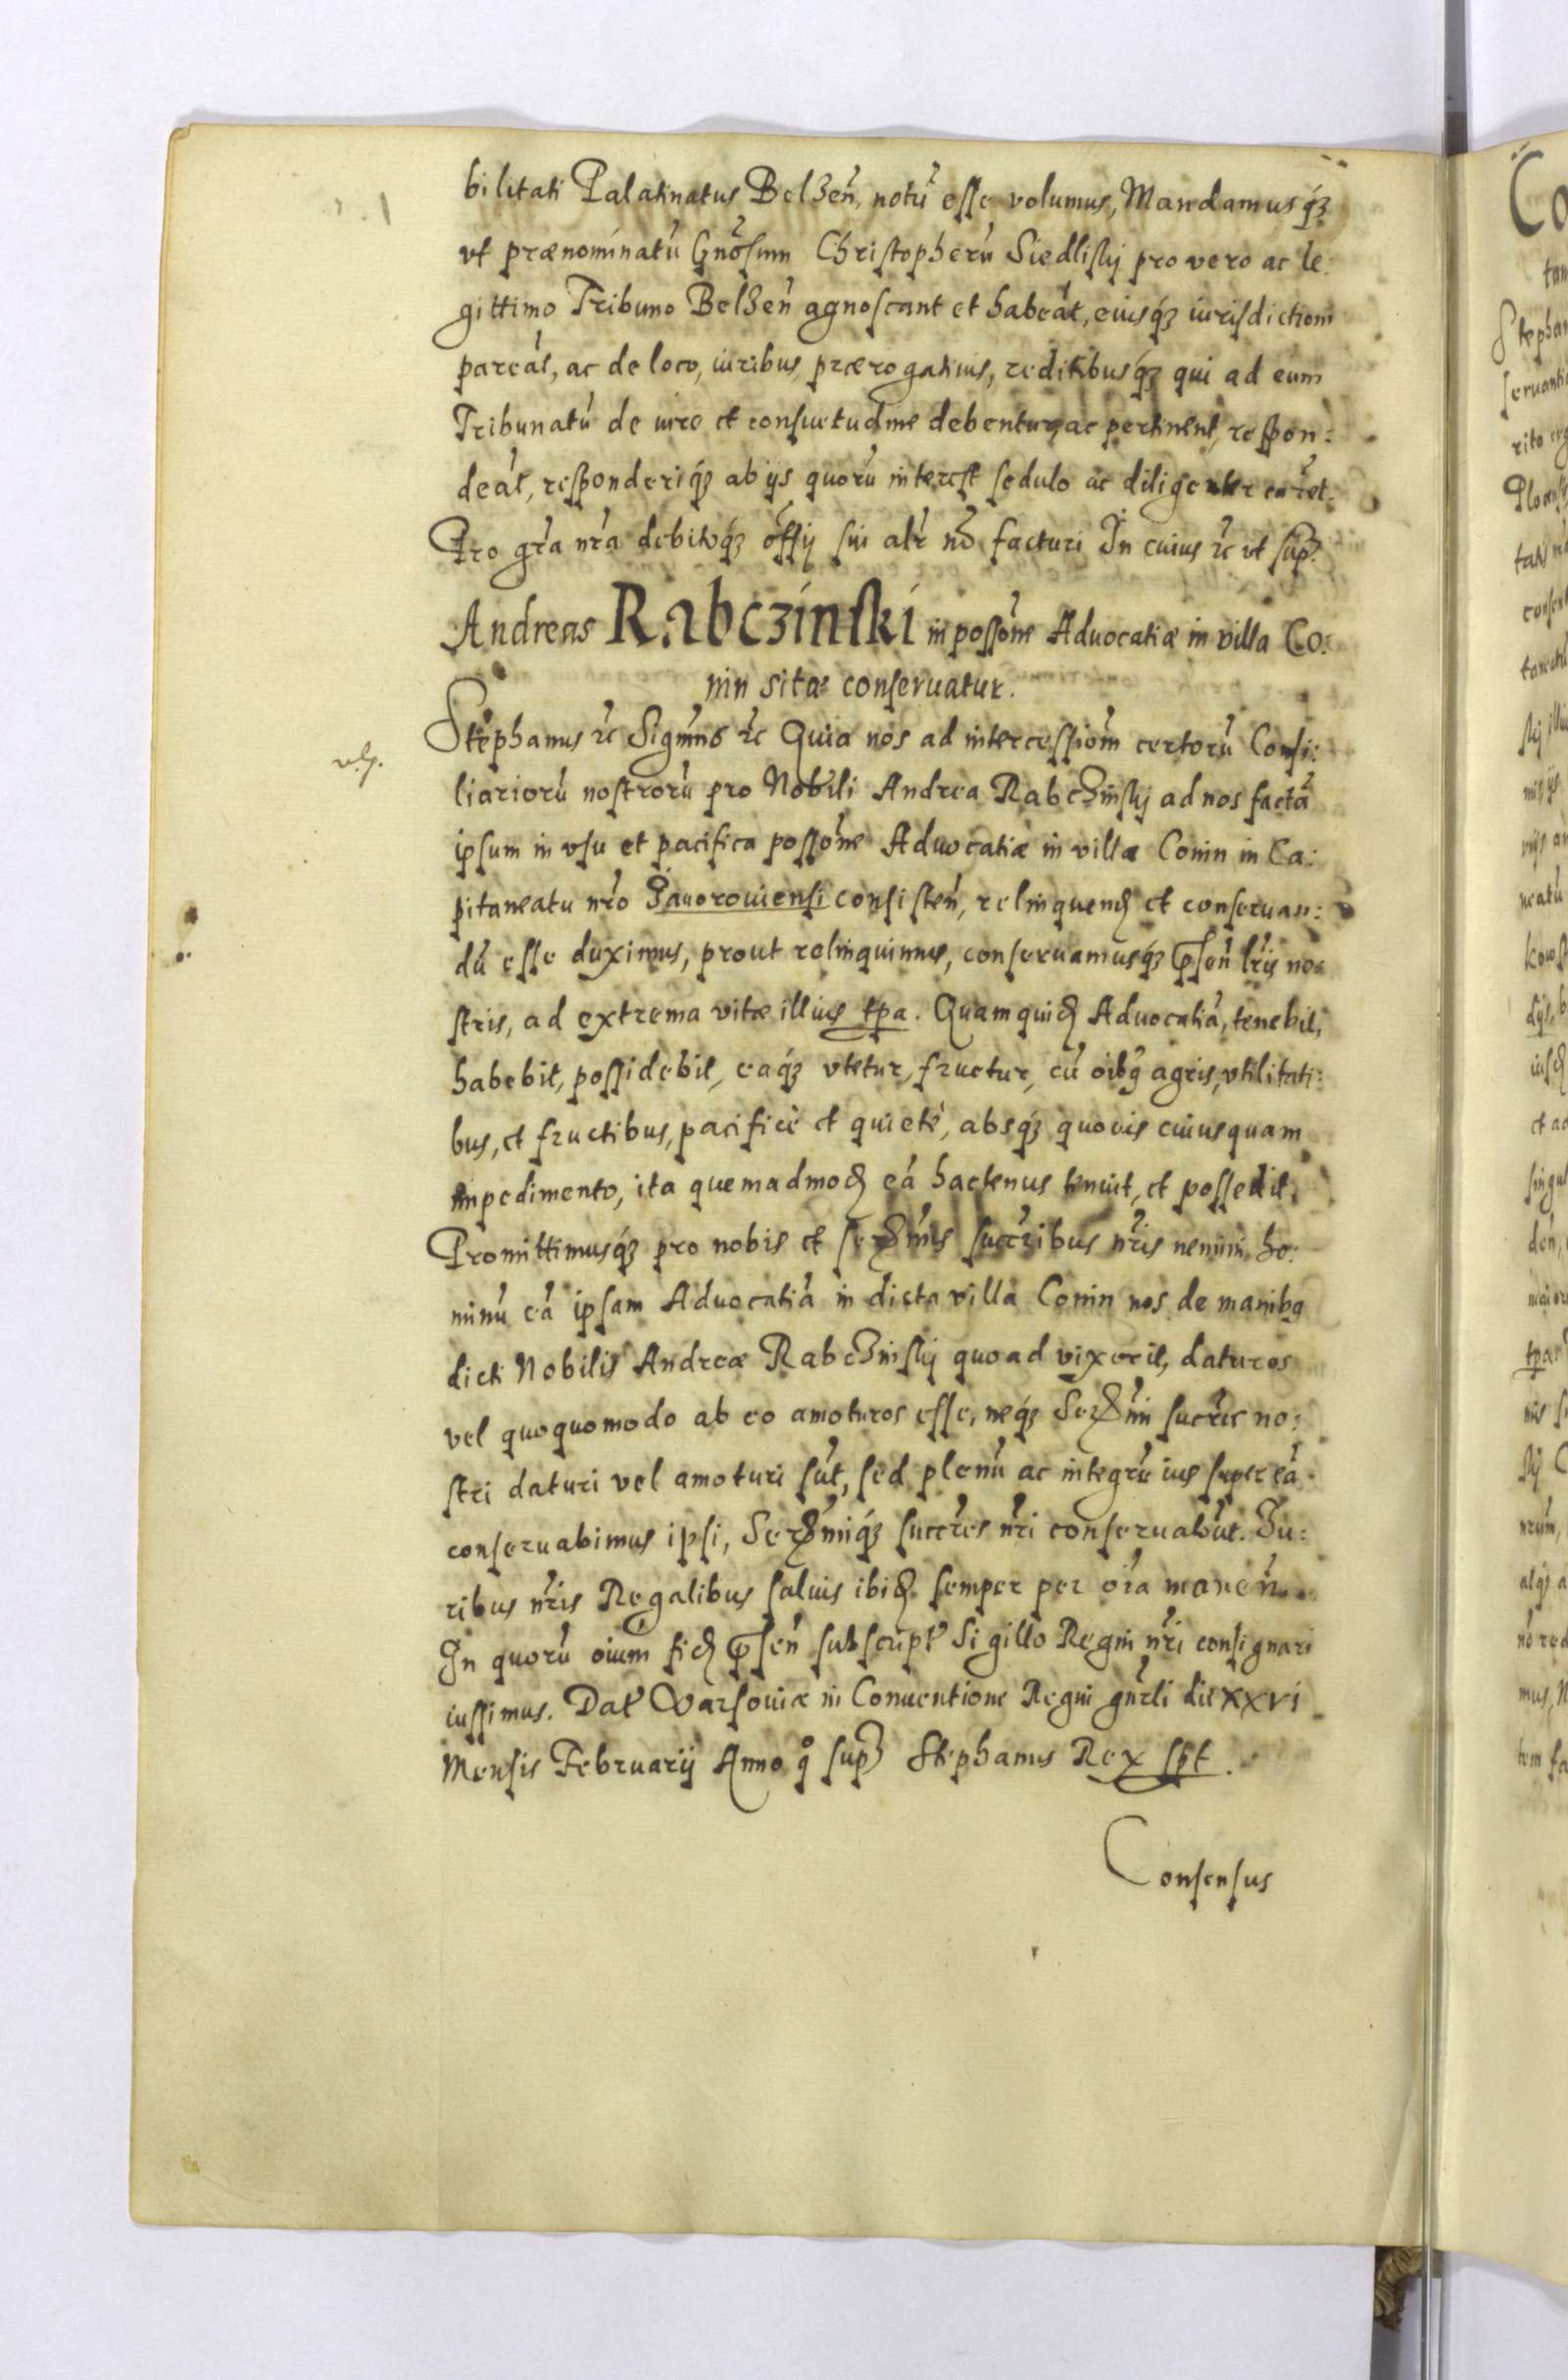 bilitati Palatinatus Belzen̄, notū esse volumus, Mandamusq́ꝫ
vt prænominatū Gnōsum Christopherū Siedliskj pro vero ac le:
gittimo Tribuno Belzen̄ agnoscant et habeāt, eiusq́ꝫ iurisdictioni
pareāt, ac de loco, iuribus, prærogatiuis, reditibusq́ꝫ qui ad eum
Tribunatū de iure et consuetudine debentur, ac pertinent, respon:
deāt, responderiq́ꝫ ab ijs quorū interest sedulo ac diligenter curēt.
Pro gr̄a nr̄a debitoq́ꝫ offij sui alr̄ nō facturi In cuius ꝛc vt sup̄
Andreas Rabczinski in possōne Aduocatiæ in villa Co:
nin sitæ conseruatur.
Stephanus ꝛc Sigm̄us ꝛc Quia nos ad intercessiōm certorū Consi:
liariorū nostrorū pro Nobili Andrea Rabczinskj ad nos factā
ipsum in vsu et pacifica possōne Aduocatiæ in villa Conin in Ca:
pitaneatu nr̄o Jauorouiensi consisten̄, relinquend̄ et conseruan:
dū esse duximus, prout relinquimus, conseruamusq́ꝫ p̄sen̄ lr̄is no:
stris, ad extrema vitæ illius tp̄a. Quam quid̄ Aduocatiā, tenebit,
habebit, possidebit, eaq́ꝫ vtetur, fruetur, cū oībꝗ agris, vtilitati:
bus, et fructibus, pacificè et quietè, absq́ꝫ quouis cuiusquam
impedimento, ita quemadmod̄ eā hactenus tenuit, et possedit.
Promittimusq́ꝫ pro nobis et serꝫm̄is succr̄ibus nr̄is nemini ho:
minū eā ipsam Aduocatiā in dicta villa Conin nos de manibꝗ
dicti Nobilis Andreæ Rabczinskj quoad vixerit, daturos
vel quoquomodo ab eo amoturos esse, neq́ꝫ Serꝫm̄i succr̄es no:
stri daturi vel amoturi sūt, sed plenū ac integrū ius super eā
conseruabimus ipsi, Serꝫm̄iq́ꝫ succr̄es nr̄i conseruabūt. Iu:
ribus nr̄is Regalibus saluis ibid̄ semper per oīa manen̄.
In quorū oīum fid̄ p̄sen̄ subscript̄ Sigillo Regni nr̄i consignari
iussimus. Dat̄ Warsouiæ in Conuentione Regni gnr̄li die xxvi
Mensis Februarij Anno q̊ sup̄ Stephanus Rex sp̄t.
Consensus